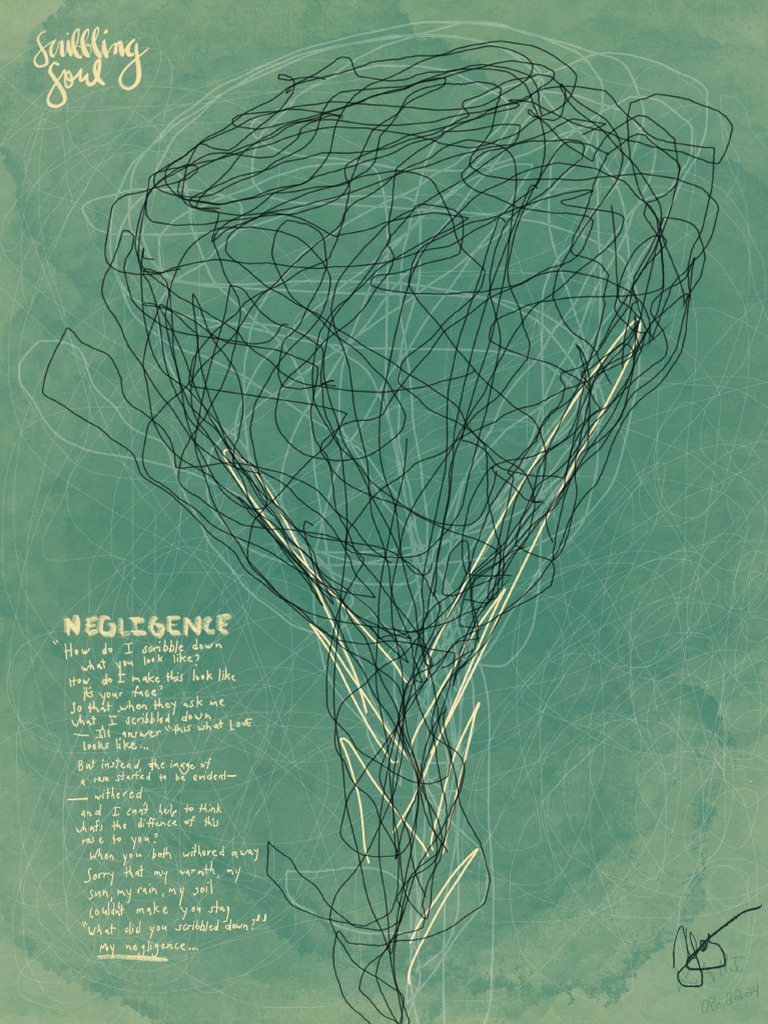 Scribbling
Soul
NEGLIGENCE
"How do I scribble down
what you look like?
How do I make this look like
its your face?
So that when they ask me
what I scribbled down
— I'll answer "this what Love
looks like...
But instead, the image of
a rose started to be evident—
— withered
and I can't help to think
what's the diffence of this
rose to you?
When you both withered away
Sorry that my warmth, my
sun, my rain, my soil
couldn't make you stay
"What did you scribbled down?"
My negligence....